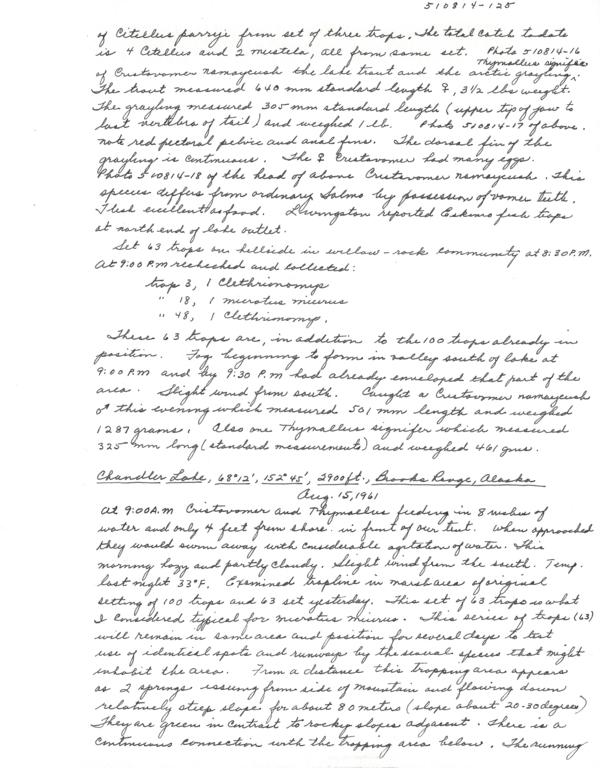 510814-125
of Citellus parryi from set of three traps. The total catch to date
is 4 Citellus and 2 mustela, all from same set. Photo 510814-16
Thymallus signifer
of Cristovomer namaycush the lake trout and the arctic grayling.
The trout measured 640 mm standard length ♀, 3½ lbs weight.
The grayling measured 305 mm standard length (upper tip of jaw to
last vertebra of tail) and weighed 1 lb. Photo 510814-17 of above.
note red pectoral pelvic and anal fins. The dorsal fin of the
grayling is continuous. The ♀ Cristovomer had many eggs.
Photo 510814-18 of the head of above Cristovomer namaycush. This
species differs from ordinary Salmo by possession of vomer teeth.
Flesh excellent as food. Livingston reported Eskimo fish traps
at north end of lake outlet.
Set 63 traps on hillside in willow-rock community at 8:30 P.M.
At 9:00 P.M rechecked and collected:
trap 3, 1 Clethrionomys
" 18, 1 microtus miurus
" 48, 1 Clethrionomys.
These 63 traps are, in addition to the 100 traps already in
position. Fog beginning to form in valley south of lake at
9:00 P.M and by 9:30 P.M had already enveloped that part of the
area. Slight wind from south. Caught a Cristovomer namaycush
♂ this evening which measured 501 mm length and weighed
1287 grams. Also one Thymallus signifer which measured
325 mm long (standard measurements) and weighed 461 gms.
Chandler Lake, 68°12', 152°45', 2900 ft., Brooks Range, Alaska
Aug. 15, 1961
At 9:00 A.M Cristovomer and Thymallus feeding in 8 inches of
water and only 4 feet from shore in front of our tent. When approached
they would swim away with considerable agitation of water. This
morning hazy and partly cloudy. Slight wind from the south. Temp.
last night 33°F. Examined trapline in marsh area of original
setting of 100 traps and 63 set yesterday. This set of 63 traps is what
I considered typical for microtus miurus. This series of traps (63)
will remain in same area and position for several days to test
use of identical spots and runways by the several species that might
inhabit the area. From a distance this trapping area appears
as 2 springs issuing from side of mountain and flowing down
relatively steep slope for about 80 meters (slope about 20-30 degrees)
They are green in contrast to rocky slopes adjacent. There is a
continuous connection with the trapping area below. The running